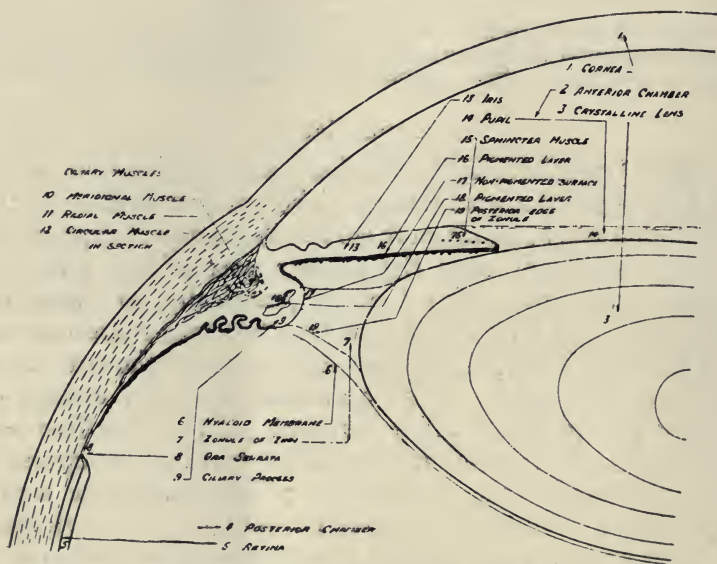 1
1. CORNEA
2 ANTERIOR CHAMBER
3 CRYSTALLINE LENS
13 IRIS
14 PUPIL
15 SPHINCTER MUSCLE
16 PIGMENTED LAYER
17 NON-PIGMENTED SURFACE
18 PIGMENTED LAYER
19 POSTERIOR EDGE
OF ZONULE
CILIARY MUSCLES
10 MERIDIONAL MUSCLE
11 RADIAL MUSCLE
12 CIRCULAR MUSCLE
IN SECTION
13
16
15
14
18
9
19
7
3
6
6 HYALOID MEMBRANE
7 ZONULE OF ZINN
8 ORA SERRATA
9 CILIARY PROCESS
8
4 POSTERIOR CHAMBER
5 RETINA
5